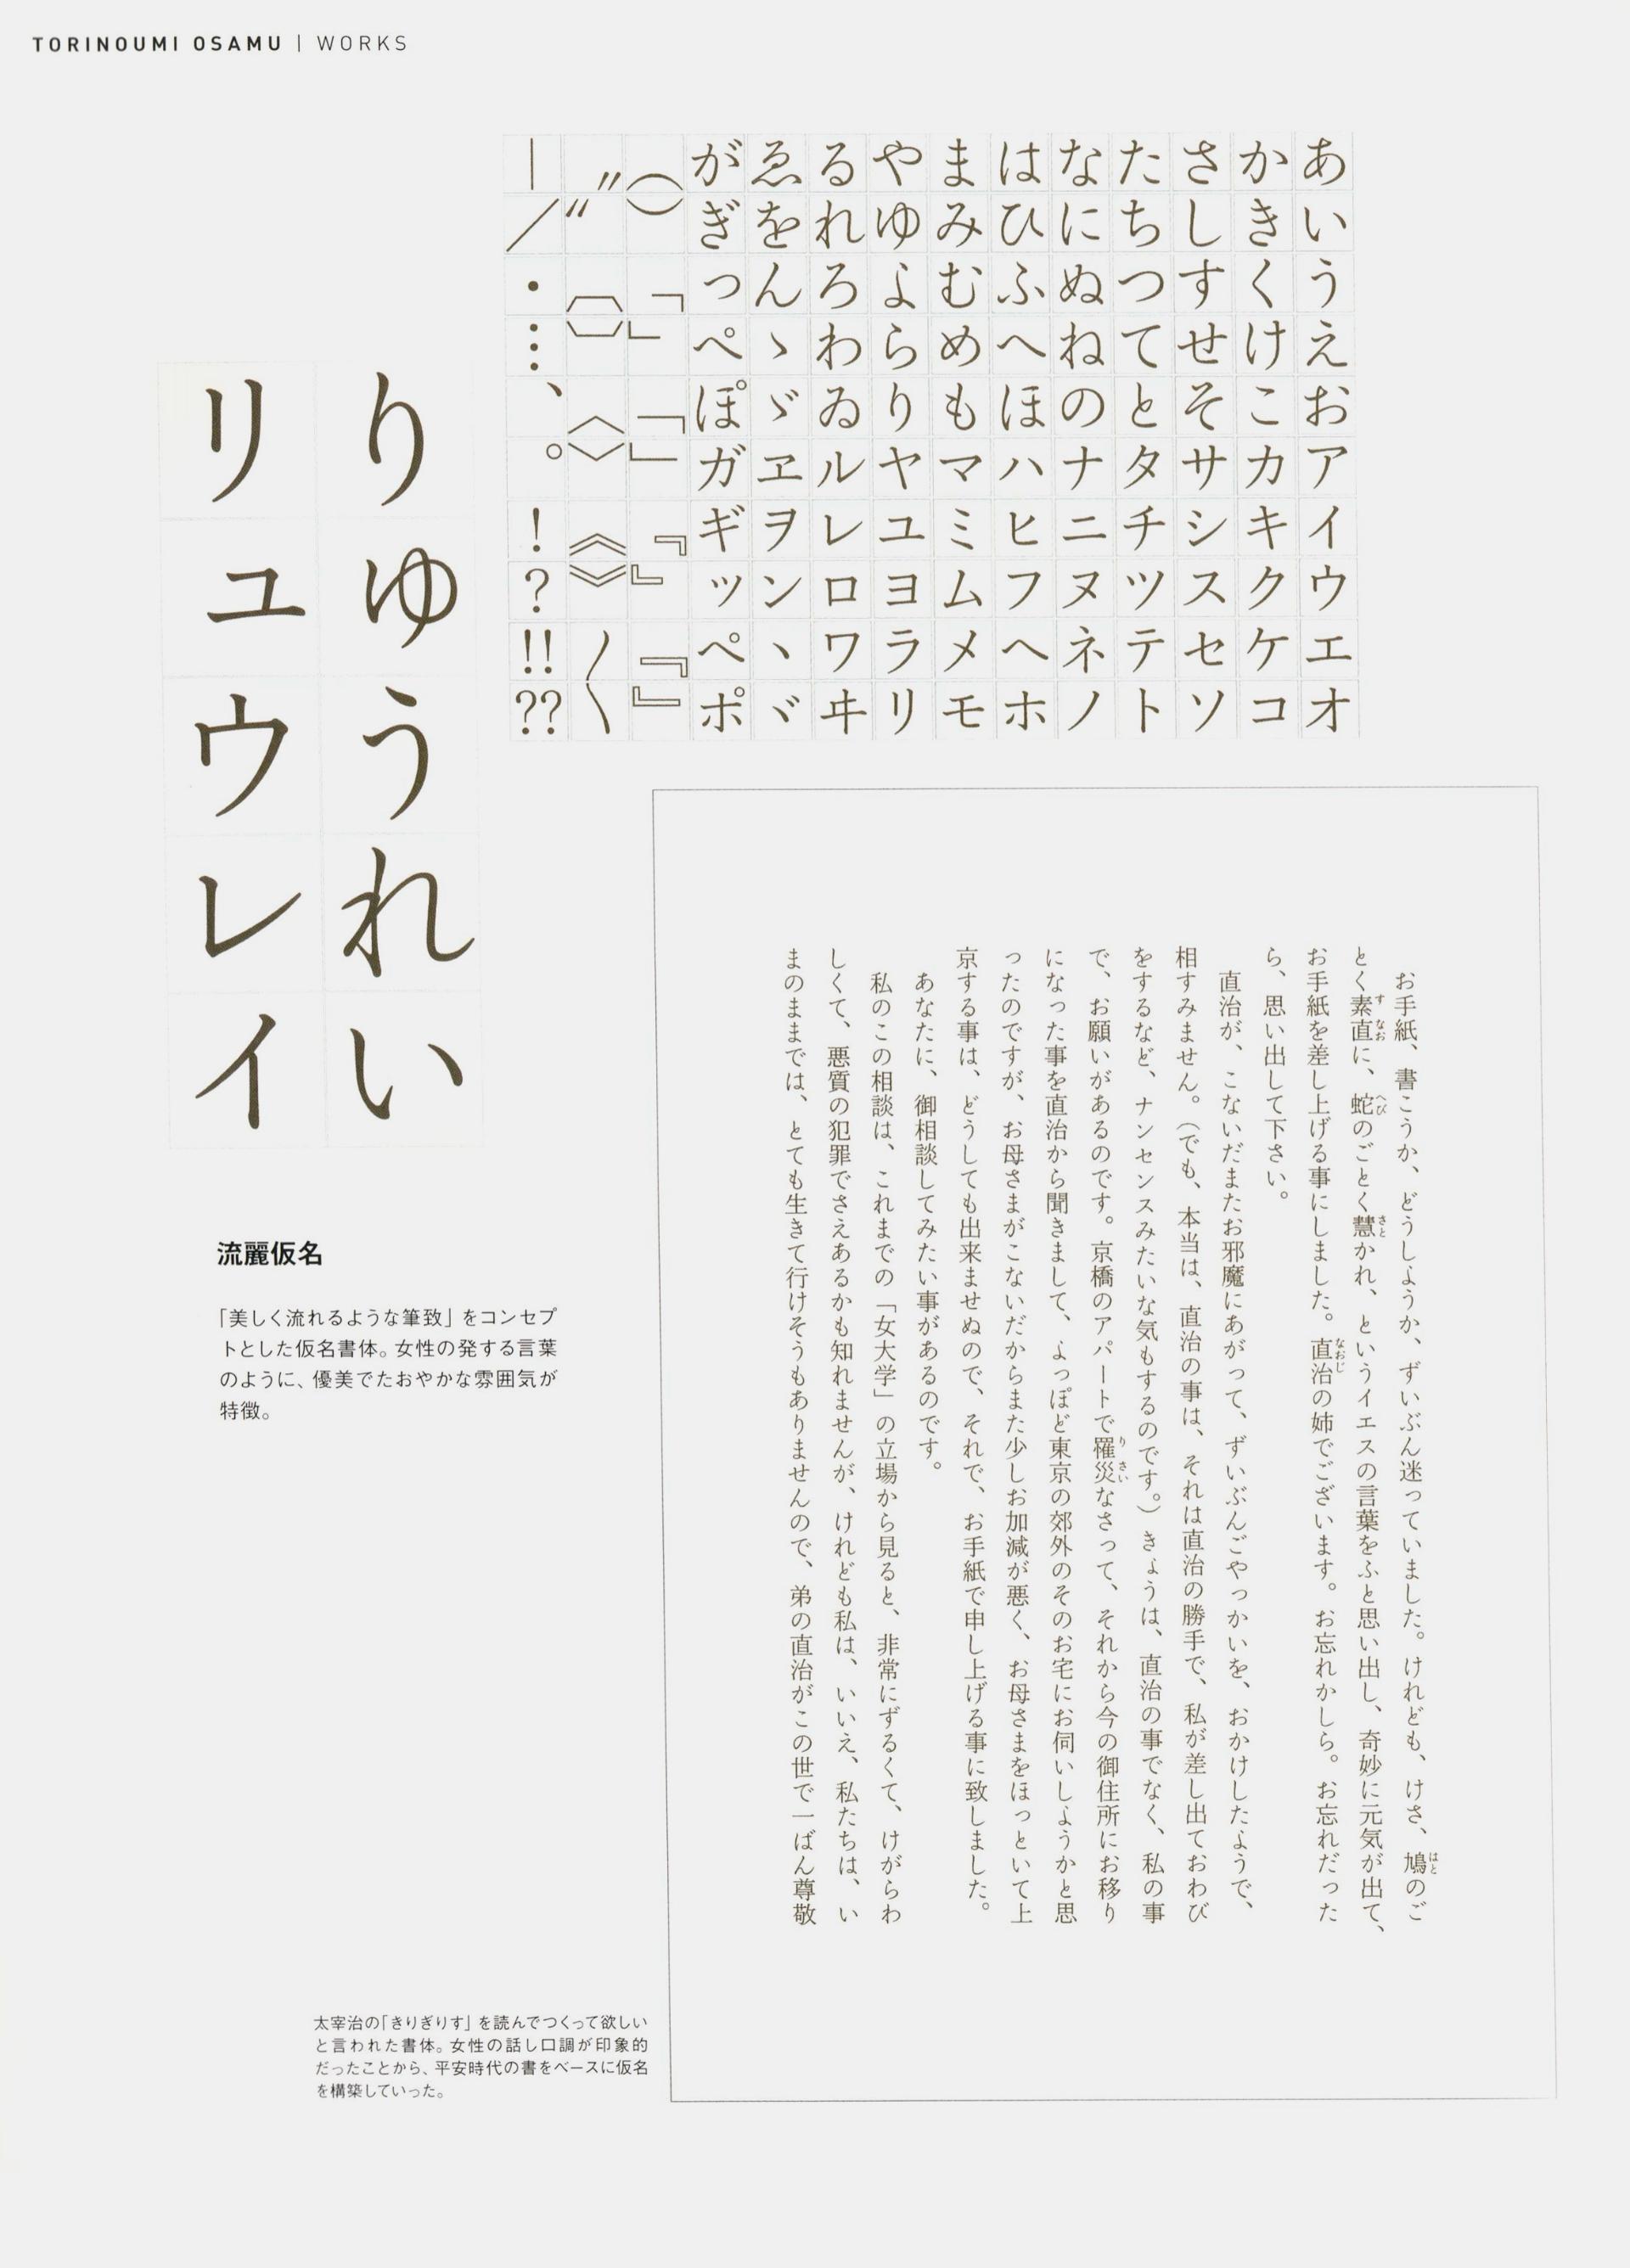 TORINOUMI OSAMU | WORKS
あいうえおアイウエオ
かきくけこカキクケコ
さしすせそサシスセソ
たちつてとタチツテト
なにぬねのナニヌネノ
はひふへほハヒフヘホ
まみむめもマミムメモ
やゆよらりヤユヨラリ
るれろわゐルレロワヰ
ゑをんゝゞヱヲンヽヾ
がぎっぺぽガギッペポ
（）「」「」『』『』
〃〃〔〕〈〉《》〳〵
｜／・…、。！？!!??
りゅうれい
リュウレイ
流麗仮名
「美しく流れるような筆致」をコンセプ
トとした仮名書体。女性の発する言葉
のように、優美でたおやかな雰囲気が
特徴。
お手紙、書こうか、どうしようか、ずいぶん迷っていました。けれども、けさ、鳩はとのご
とく素直すなおに、蛇へびのごとく慧さとかれ、というイエスの言葉をふと思い出し、奇妙に元気が出て、
お手紙を差し上げる事にしました。直治なおじの姉でございます。お忘れかしら。お忘れだった
ら、思い出して下さい。
直治が、こないだまたお邪魔にあがって、ずいぶんごやっかいを、おかけしたようで、
相すみません。（でも、本当は、直治の事は、それは直治の勝手で、私が差し出ておわび
をするなど、ナンセンスみたいな気もするのです。）きょうは、直治の事でなく、私の事
で、お願いがあるのです。京橋のアパートで罹災りさいなさって、それから今の御住所にお移り
になった事を直治から聞きまして、よっぽど東京の郊外のそのお宅にお伺いしようかと思
ったのですが、お母さまがこないだからまた少しお加減が悪く、お母さまをほっといて上
京する事は、どうしても出来ませぬので、それで、お手紙で申し上げる事に致しました。
あなたに、御相談してみたい事があるのです。
私のこの相談は、これまでの「女大学」の立場から見ると、非常にずるくて、けがらわ
しくて、悪質の犯罪でさえあるかも知れませんが、けれども私は、いいえ、私たちは、い
まのままでは、とても生きて行けそうもありませんので、弟の直治がこの世で一ばん尊敬
太宰治の「きりぎりす」を読んでつくって欲しい
と言われた書体。女性の話し口調が印象的
だったことから、平安時代の書をベースに仮名
を構築していった。